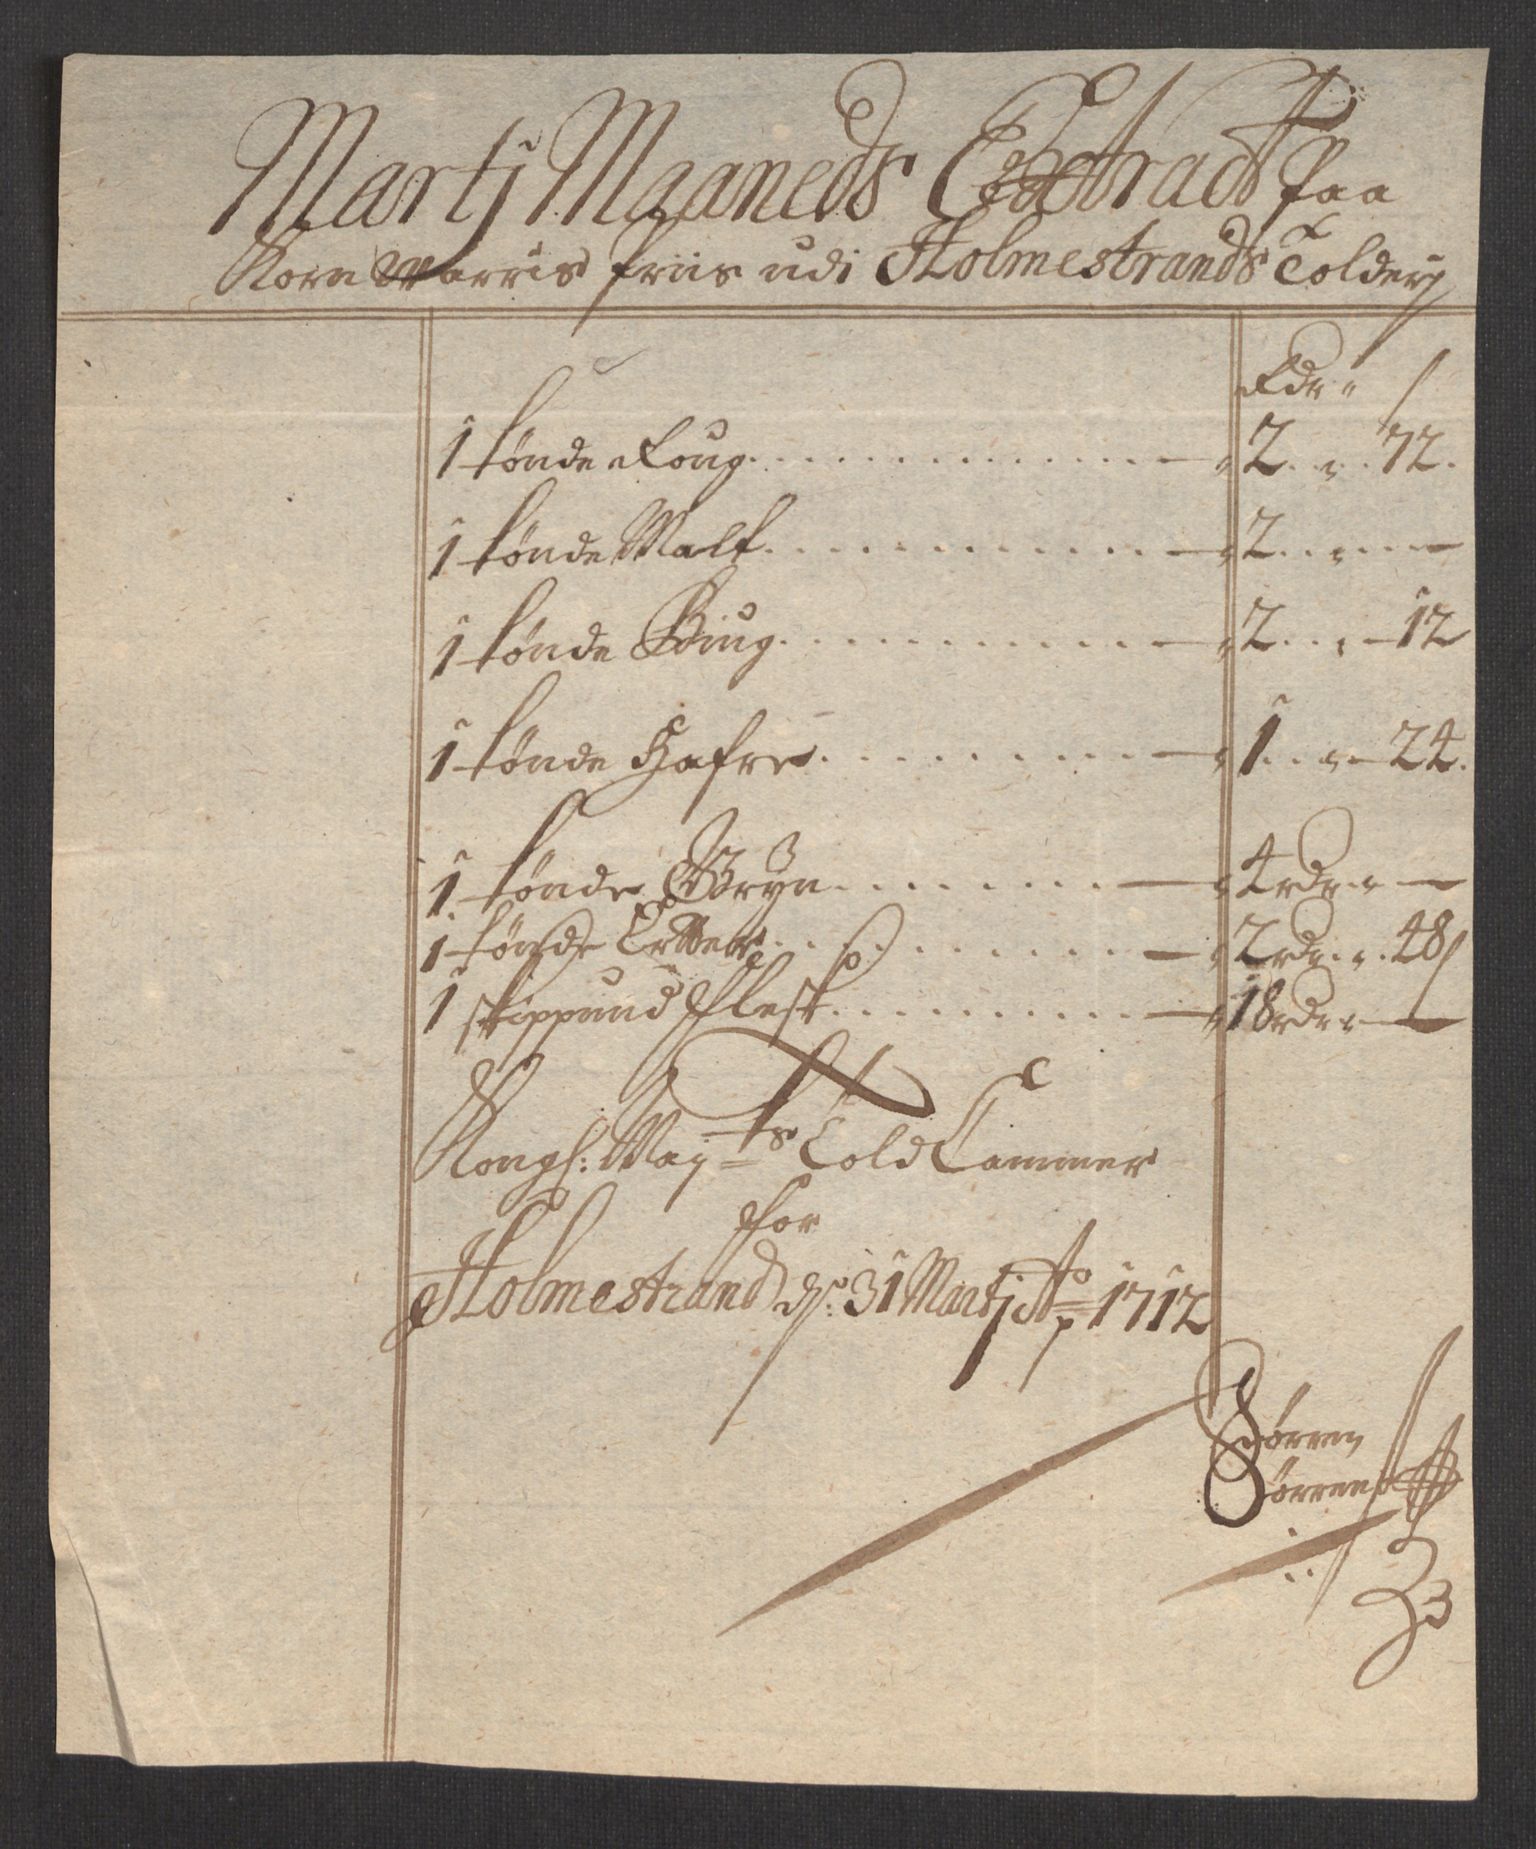 Martj Maaneds Extract paa
Korn Warris Priis udi Holmestrands Tolderj
Rdr " s
1 tønde Roug . . . . . . . . . . . . . . — " 2 . " . 72 .
1 tønde Malt . . . . . . . . . . . . . . — " 2 . . " —
1 tønde Biug . . . . . . . . . . . . . . — " 2 . . " — 12
1 tønde Hafre . . . . . . . . . . . . — " 1 . . " — 24 .
1 tønde Gryn . . . . . . . . . — " 4 rdr " —
1 tønde Ertter . . . . . . . . . . — " 2 rdr . " . 48 s
1 skippund Flesk . . . . . . . . . . — " 18 rdr " —
Kongl: May=ts Told Cammer
for
Holmestrand ds: 31 Martj Ao 1712
Sørren
Sørrens